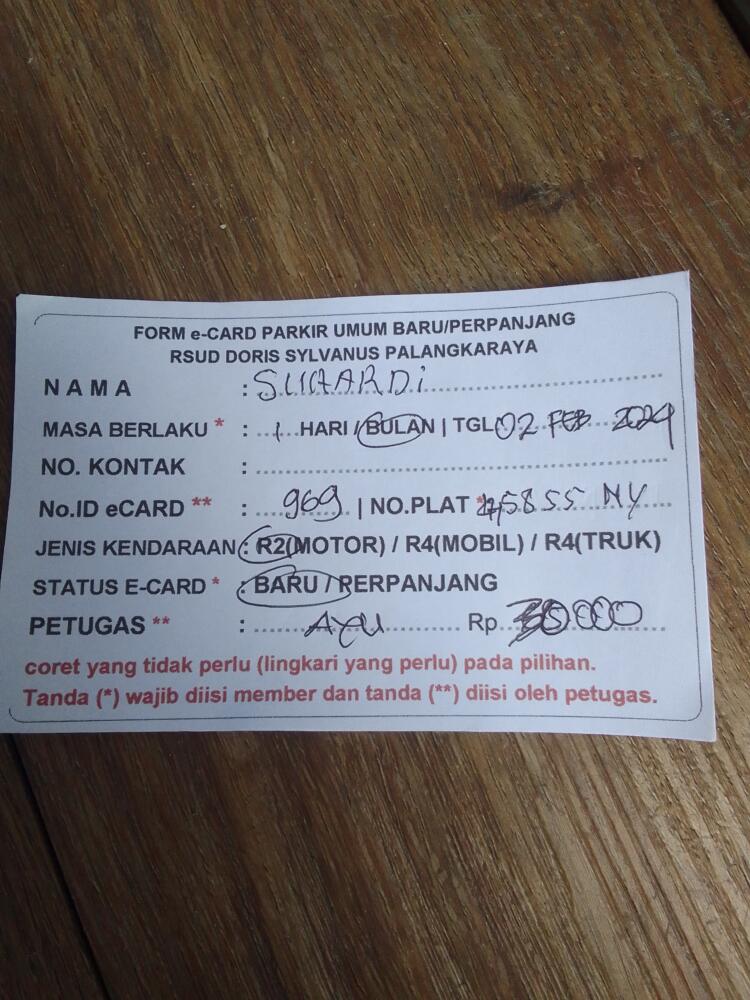 FORM e-CARD PARKIR UMUM BARU/PERPANJANG
RSUD DORIS SYLVANUS PALANGKARAYA
NAMA : SUHARDi
MASA BERLAKU * : 1 HARI / BULAN | TGL 02 FEB 2024
NO. KONTAK :
No.ID eCARD ** : 969 | NO.PLAT * 5855 NY
JENIS KENDARAAN : R2(MOTOR) / R4(MOBIL) / R4(TRUK)
STATUS E-CARD * : BARU / PERPANJANG
PETUGAS ** : AYU Rp
coret yang tidak perlu (lingkari yang perlu) pada pilihan.
Tanda (*) wajib diisi member dan tanda (**) diisi oleh petugas.